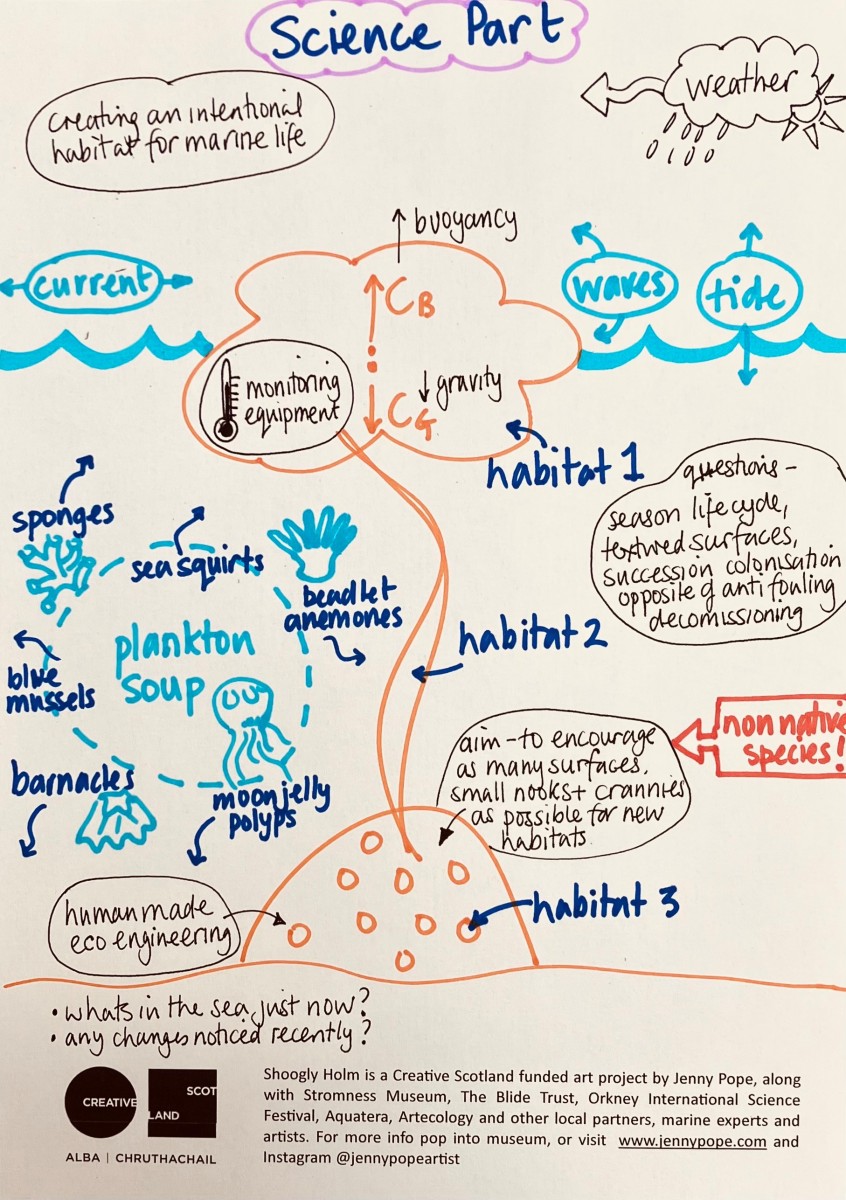 Science Part
creating an intentional
habitat for marine life
weather
↑ buoyancy
current
waves
tide
↑ CB
↓ CG
↓ gravity
monitoring
equipment
habitat 1
questions -
season lifecycle,
textured surfaces,
succession colonisation
opposite of anti fouling
decomissioning
sponges
sea squirts
beadlet
anemones
plankton
soup
blue
mussels
barnacles
moon jelly
polyps
habitat 2
non native
species!
aim - to encourage
as many surfaces,
small nooks + crannies
as possible for new
habitats.
human made
eco engineering
habitat 3
• whats in the sea just now?
• any changes noticed recently?
CREATIVE SCOT
LAND
ALBA | CHRUTHACHAIL
Shoogly Holm is a Creative Scotland funded art project by Jenny Pope, along
with Stromness Museum, The Blide Trust, Orkney International Science
Festival, Aquatera, Artecology and other local partners, marine experts and
artists. For more info pop into museum, or visit www.jennypope.com and
Instagram @jennypopeartist